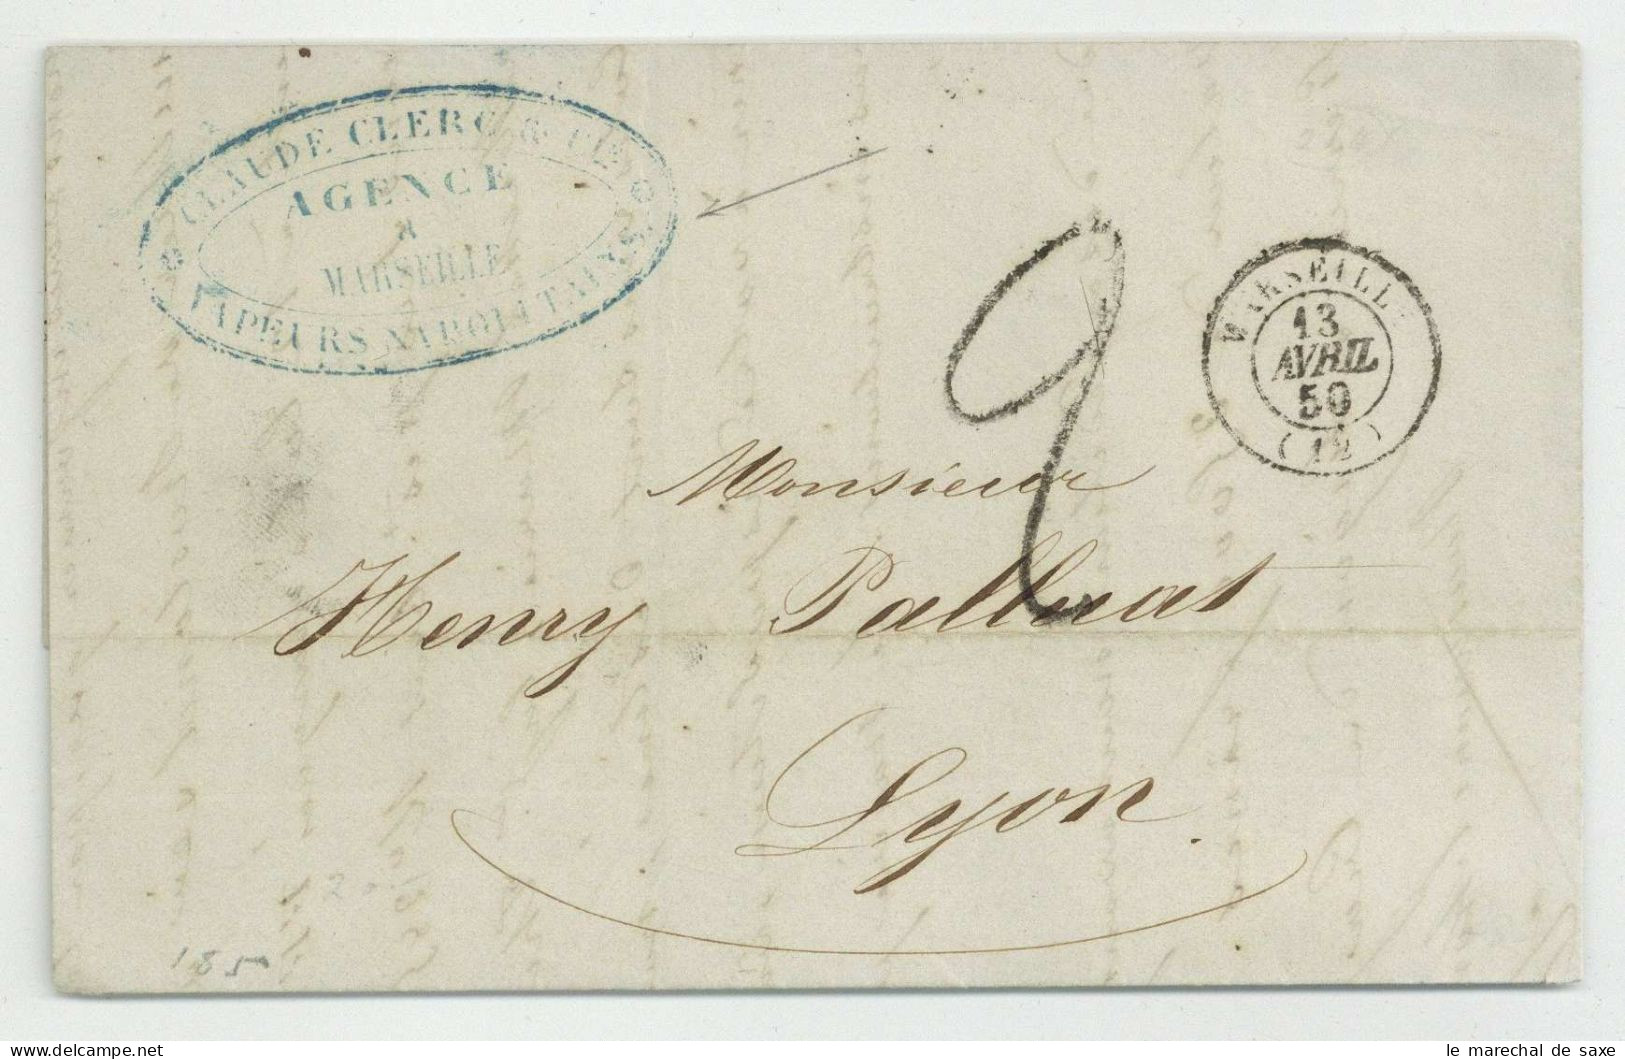 CLAUDE CLERC & Cie
AGENCE
A
MARSEILLE
VAPEURS NAPOLITAINS
MARSEILLE
13
AVRIL
50
(12)
2
Monsieur
Henry Palluat
Lyon.
185
delcampe.net
le marechal de saxe